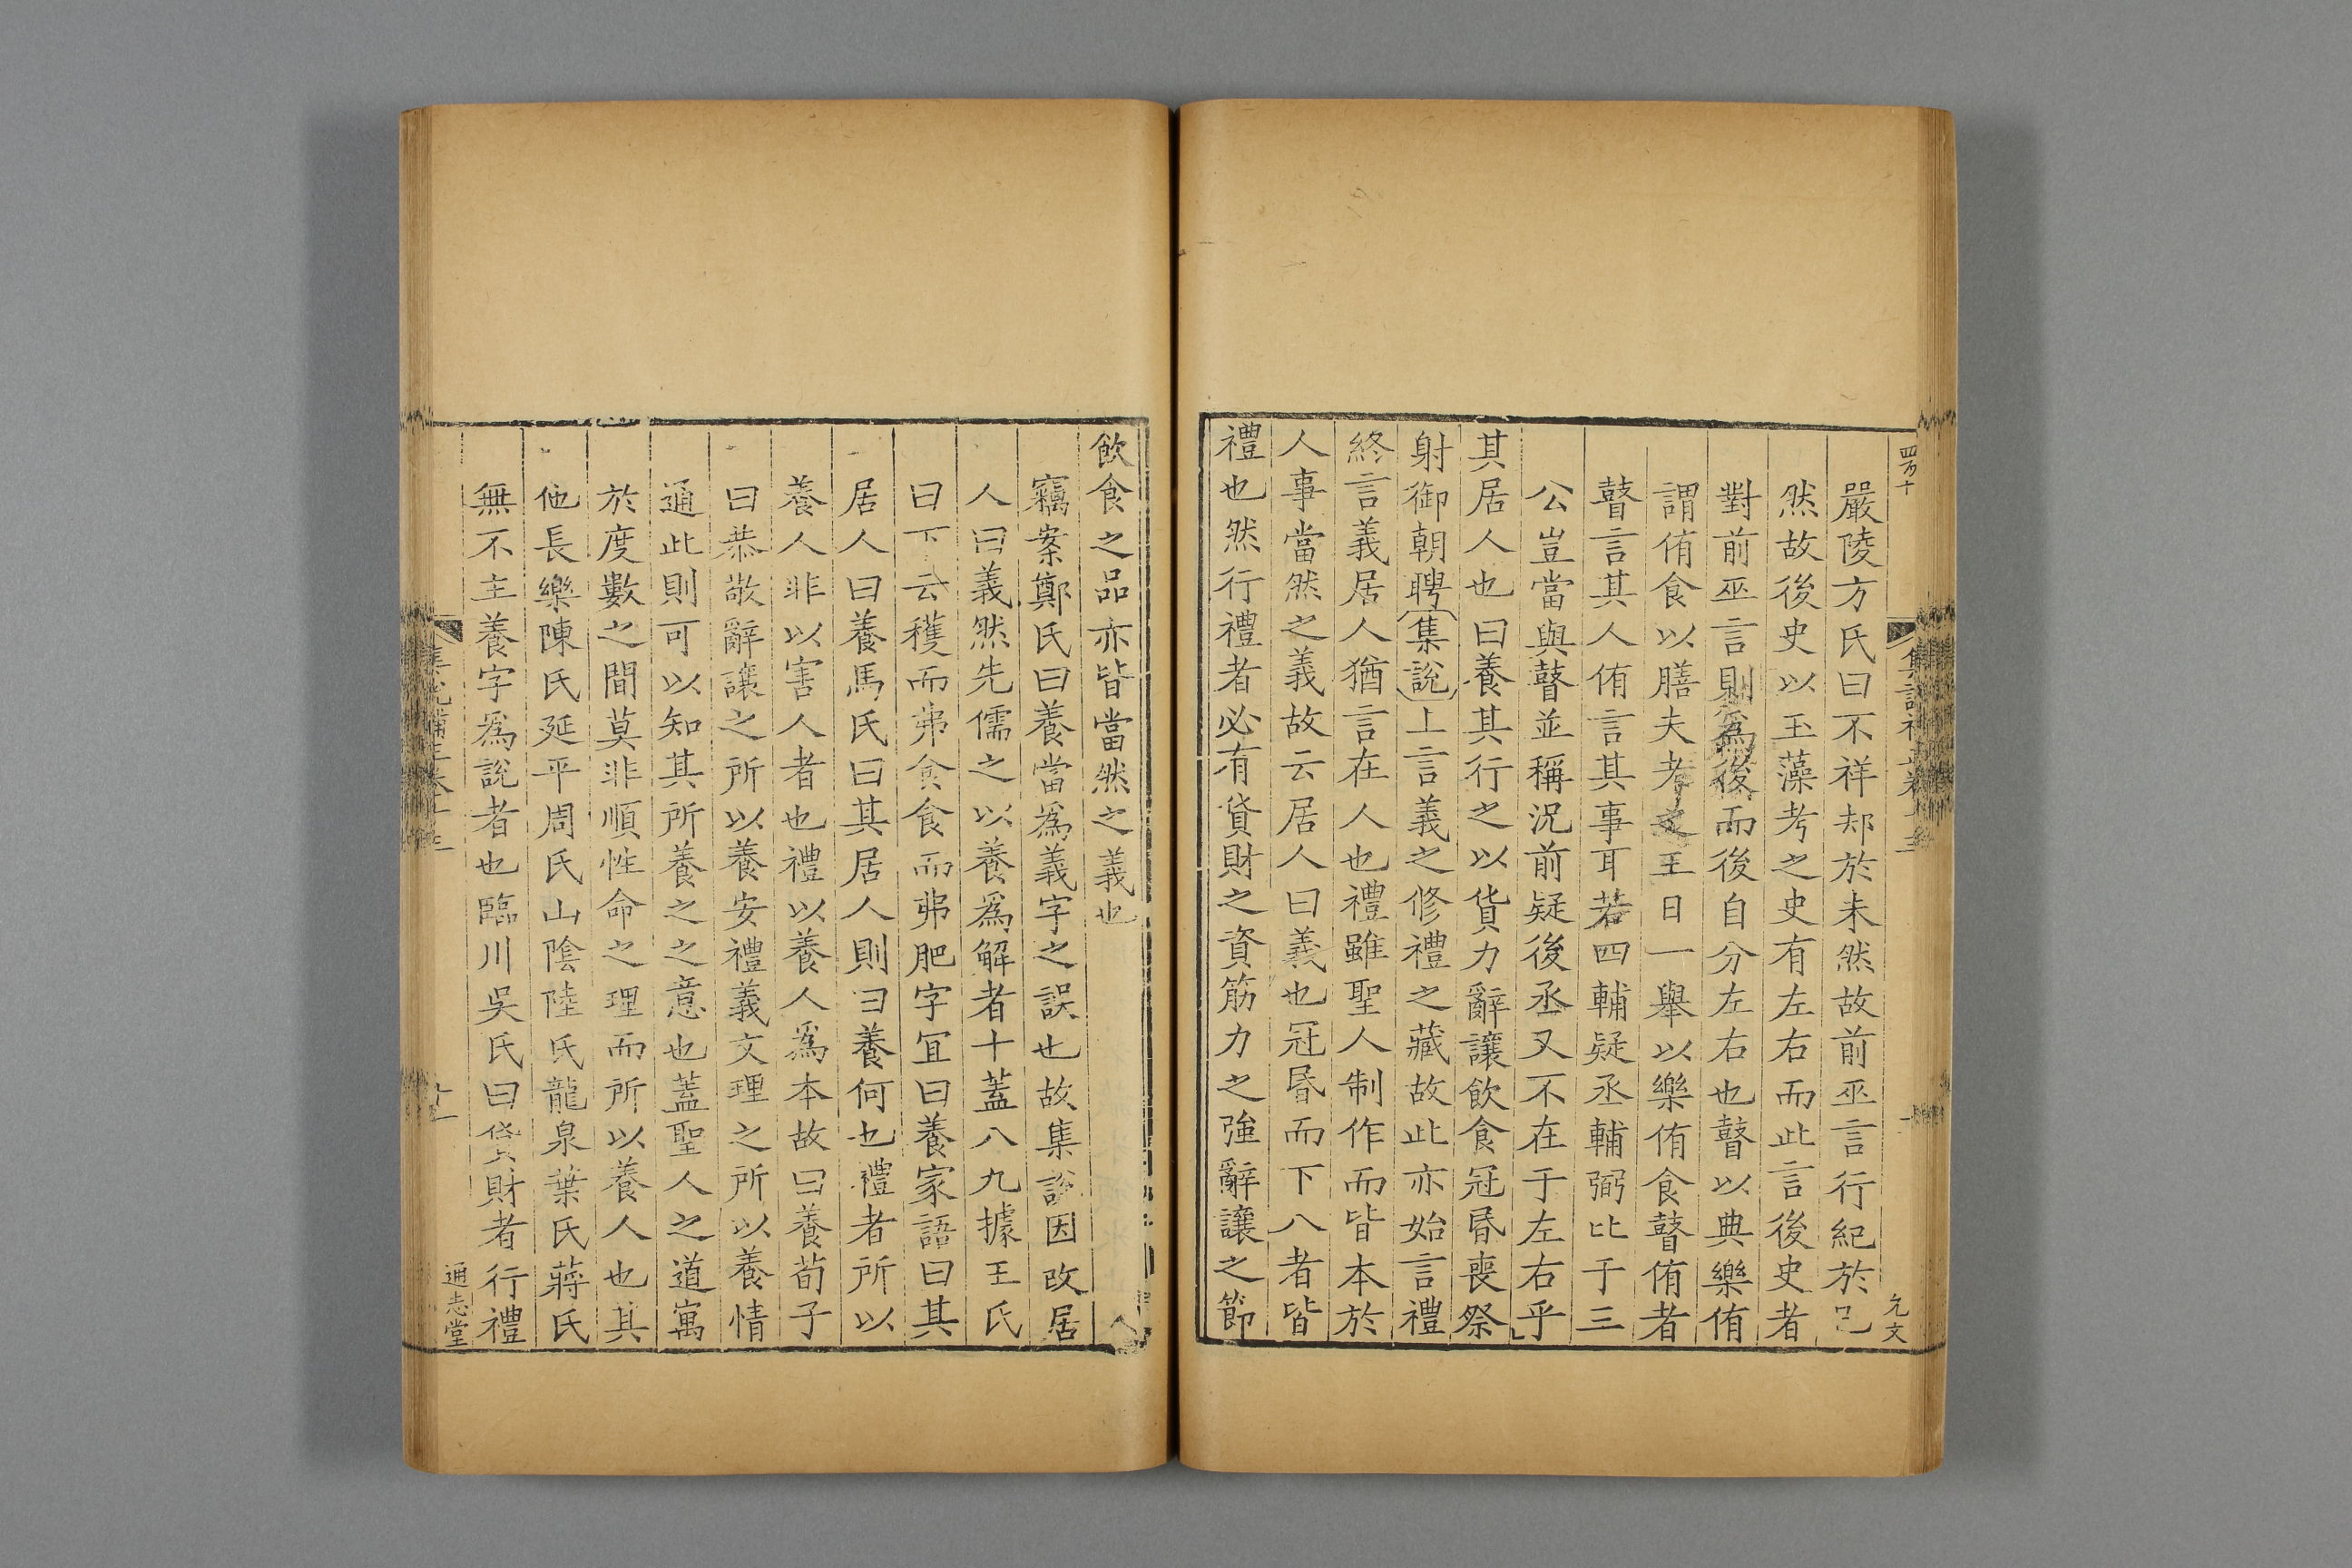 四百十
嚴陵方氏曰不祥却於未然故前巫言行紀於已
然故後史以玉藻考之史有左右而此言後史者
對前巫言則為後而後自分左右也瞽以典樂侑
謂侑食以膳夫考之王日一舉以樂侑食瞽侑者
瞽言其人侑言其事耳若四輔疑丞輔弼比于三
公豈當與瞽並稱況前疑後丞又不在于左右乎
其居人也曰養其行之以貨力辭讓飲食冠昏喪祭
射御朝聘集說上言義之修禮之藏故此亦始言禮
終言義居人猶言在人也禮雖聖人制作而皆本於
人事當然之義故云居人曰義也冠昏而下八者皆
禮也然行禮者必有貨財之資筋力之強辭讓之節
允文
飲食之品亦皆當然之義也
竊案鄭氏曰養當為義字之誤也故集說因改居
人曰義然先儒之以養為解者十蓋八九據王氏
曰下云穫而弗食食而弗肥字宜曰養家語曰其
居人曰養馬氏曰其居人則曰養何也禮者所以
養人非以害人者也禮以養人為本故曰養荀子
曰恭敬辭讓之所以養安禮義文理之所以養情
通此則可以知其所養之之意也蓋聖人之道寓
於度數之間莫非順性命之理而所以養人也其
他長樂陳氏延平周氏山陰陸氏龍泉葉氏蔣氏
無不主養字為說者也臨川吳氏曰貨財者行禮
十一
通志堂